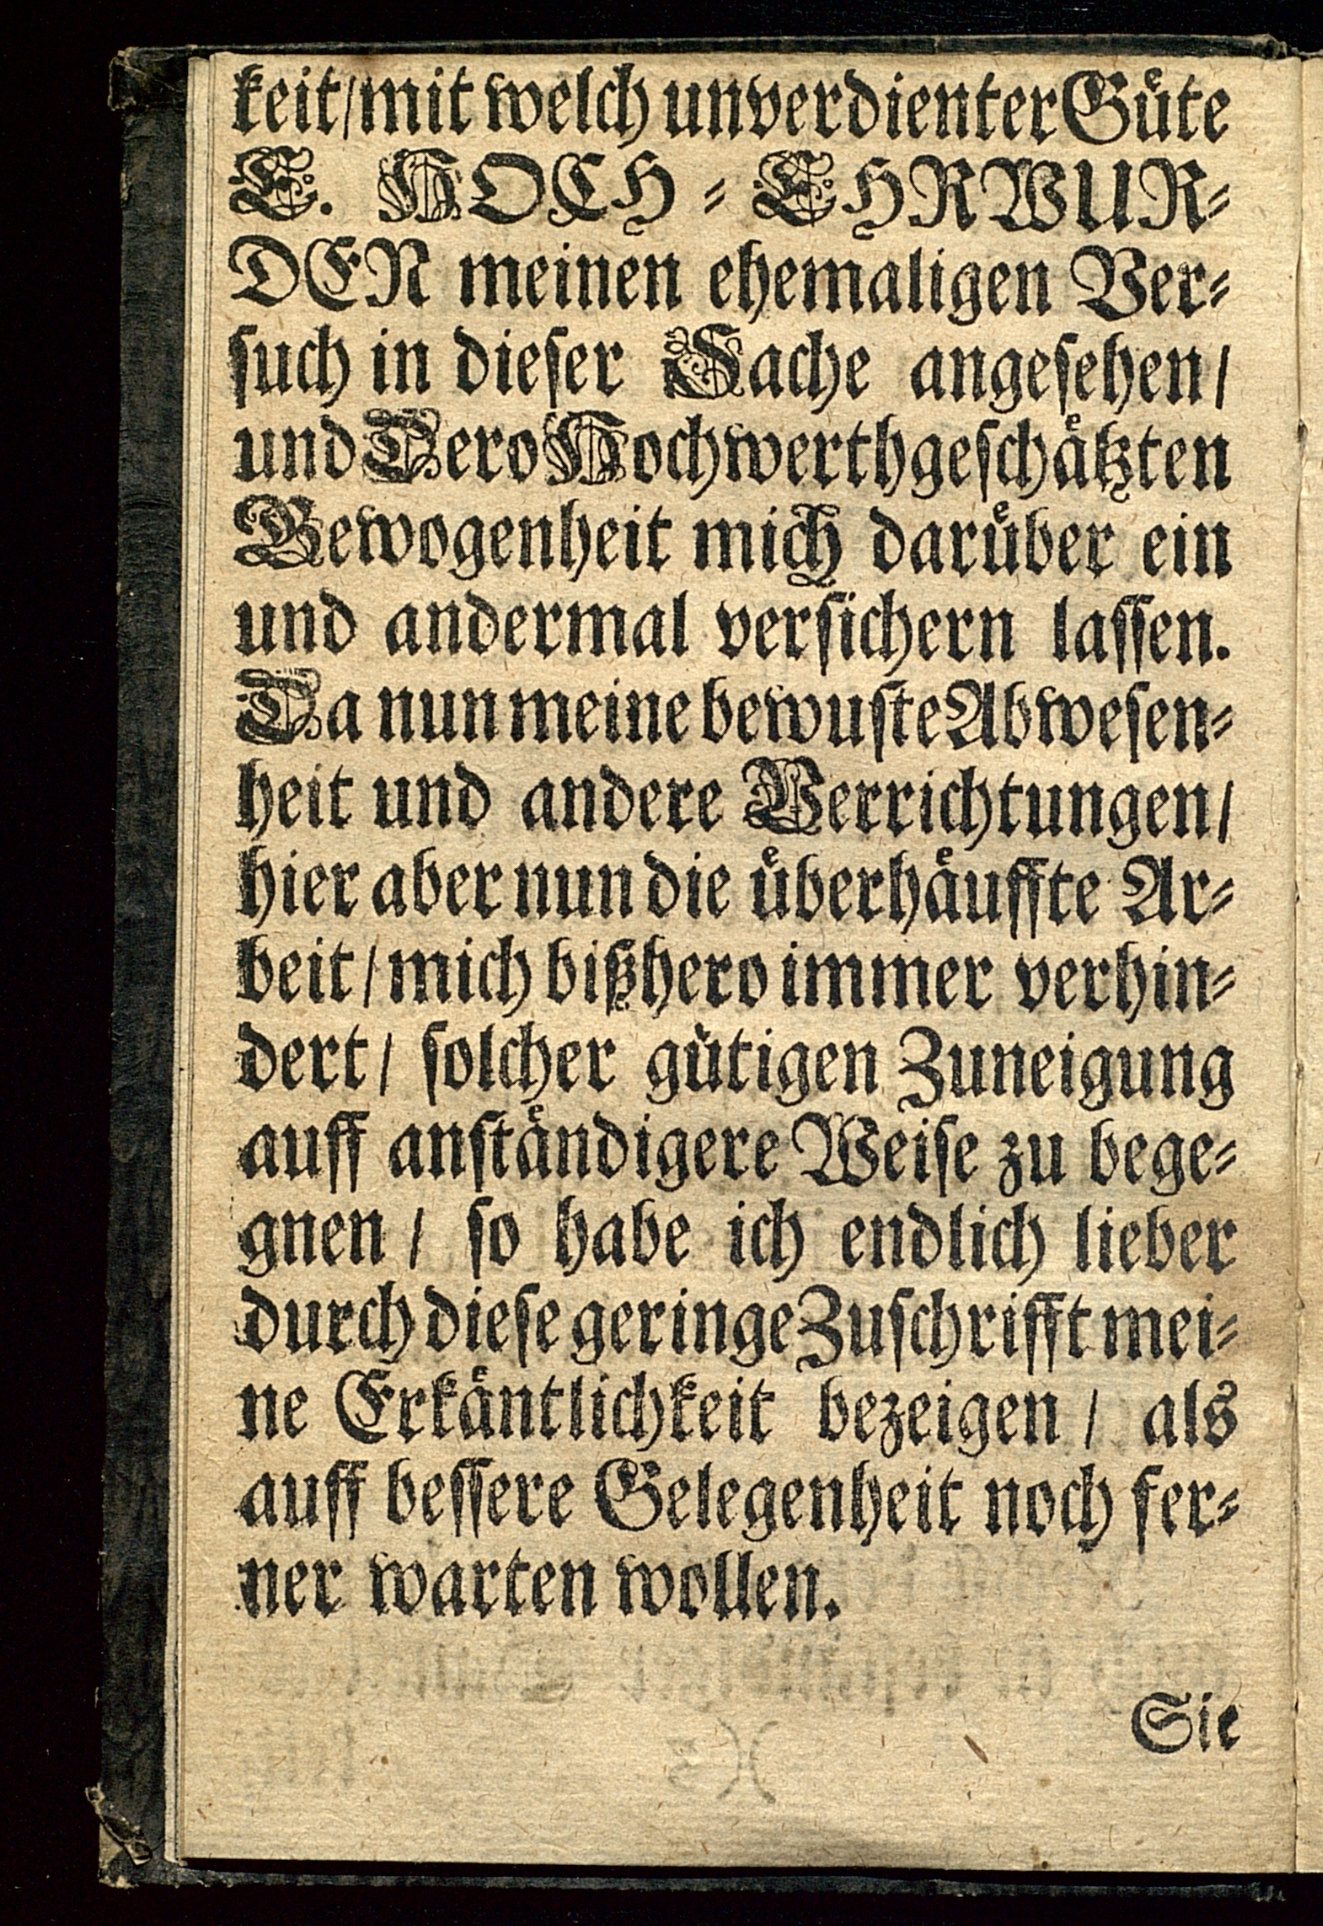 keit/mit welch unverdienter Güte
E. HOCH-EHRWUR-
DEN meinen ehemaligen Ver-
such in dieser Sache angesehen/
und Dero Hochwerthgeschätzten
Bewogenheit mich darüber ein
und andermal versichern lassen.
Da nun meine bewuste Abwesen-
heit und andere Verrichtungen/
hier aber nun die überhäuffte Ar-
beit/mich bißhero immer verhin-
dert/ solcher gütigen Zuneigung
auff anständigere Weise zu bege-
gnen/ so habe ich endlich lieber
durch diese geringe Zuschrifft mei-
ne Erkäntlichkeit bezeigen/ als
auff bessere Gelegenheit noch fer-
ner warten wollen.
Sie